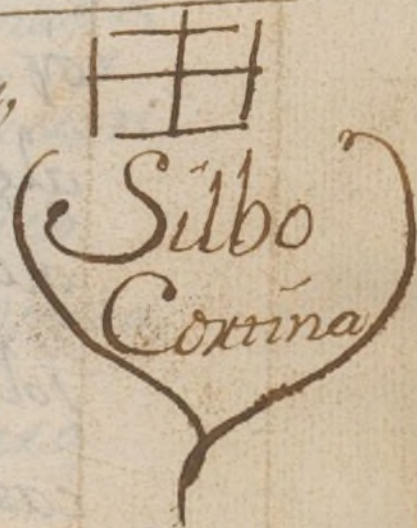 Silbo
Cortina